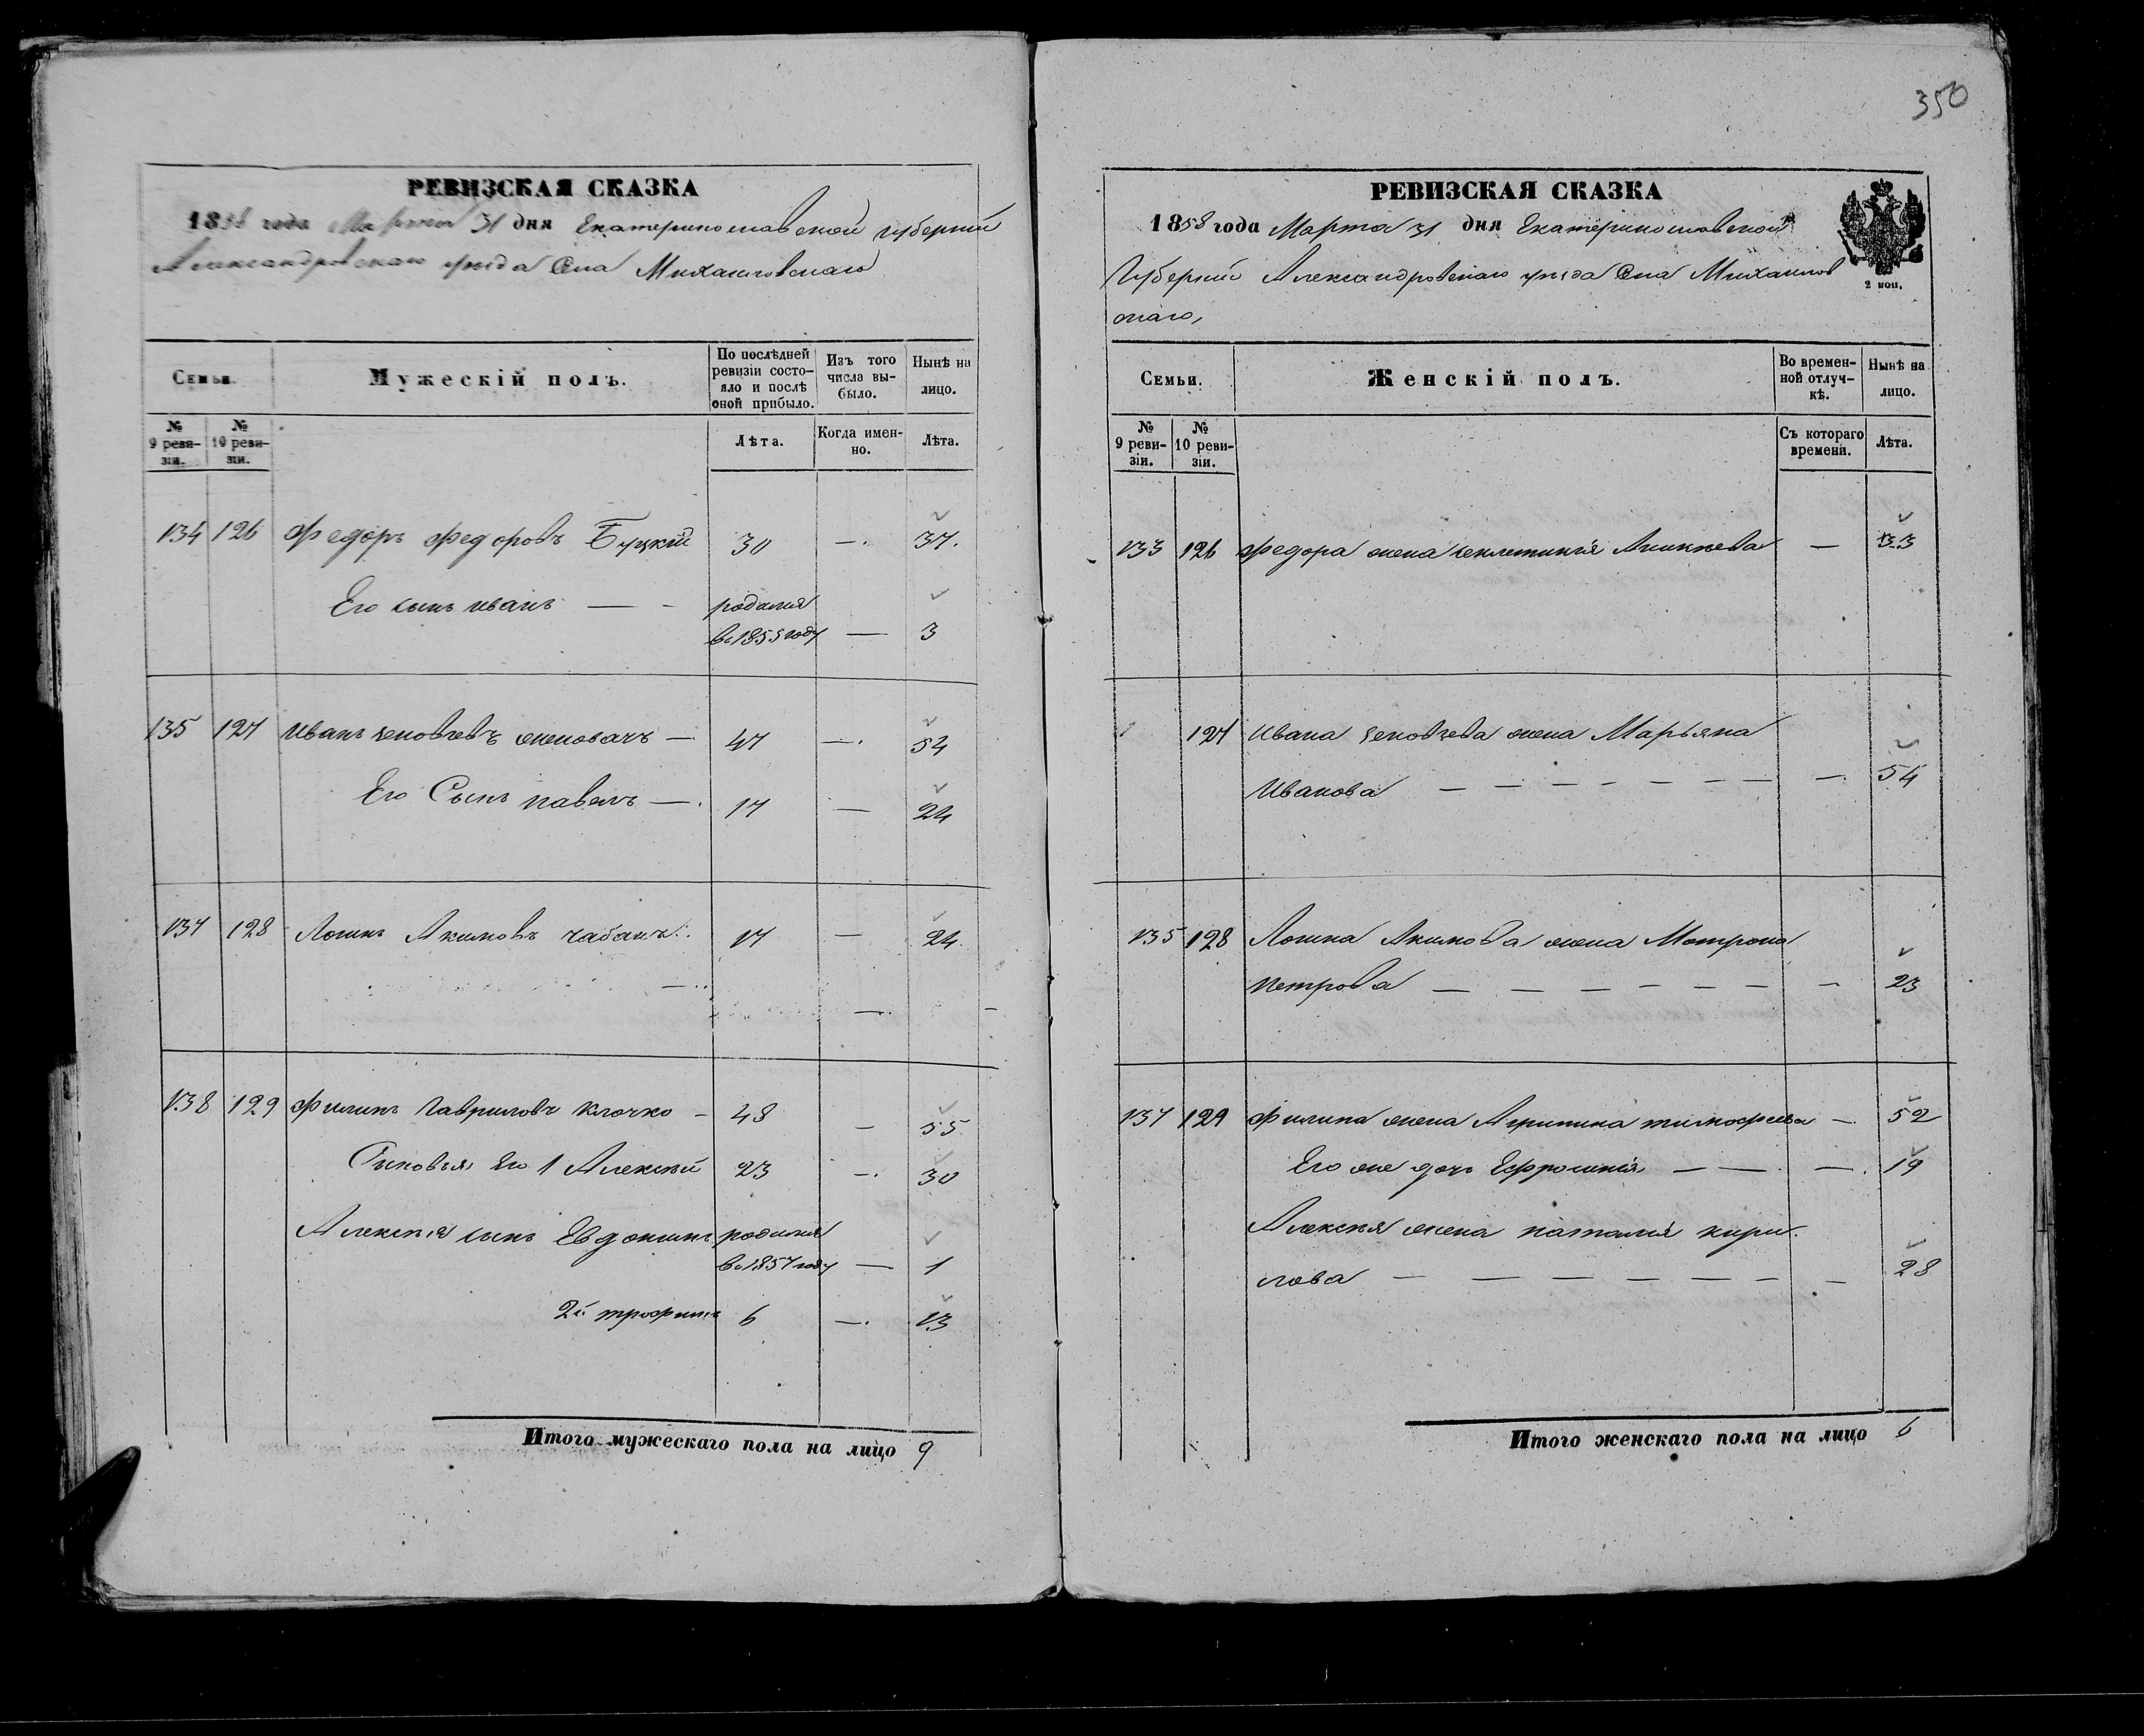 350
РЕВИЗСКАЯ СКАЗКА
1858 года Марта 31 дня Екатеринославской губернии
Александровскаго уѣзда Села Михайловскаго
Семьи.
Мужескій полъ.
По послѣдней ревизіи состояло и послѣ оной прибыло.
Изъ того числа выбыло.
Нынѣ на лицо.
№ 9 ревизіи.
№ 10 ревизіи.
Лѣта.
Когда именно.
Лѣта.
134 126 Федоръ Федоровъ Буцкій 30 — 37.
Его сынъ иванъ — родился
во 1855 году — 3
135 127 Иванъ — 47 — 54
Его Сынъ павелъ — 17 — 24
137 128 Логинъ Акимовъ чабанъ 17 — 24
138 129 Филипъ Гавриловъ Клочко — 48 — 55
Сыновья его 1 Алексѣй 23 — 30
Алексѣя сынъ Евдокимъ родился
во 1857 году — 1
2й трофимъ 6 — 13
Итого мужескаго пола на лицо 9
РЕВИЗСКАЯ СКАЗКА
1858 года Марта 31 дня Екатеринославской
Губерніи Александровскаго уѣзда Села Михайлов
скаго,
2 коп.
Семьи.
Женскій полъ.
Во временной отлучкѣ.
Нынѣ на лицо.
№ 9 ревизіи.
№ 10 ревизіи.
Съ котораго времени.
Лѣта.
133 126 Федора жена — 33
127 Ивана жена Марьяна
Иванова — 54
135 128 Логина Акимова жена Матрона
Петрова — 23
137 129 Филипа жена Агрипина тимофеева — 52
Его же дочь Ефросинія — 19
Алексѣя жена наталія кири-
лова — 28
Итого женскаго пола на лицо 6